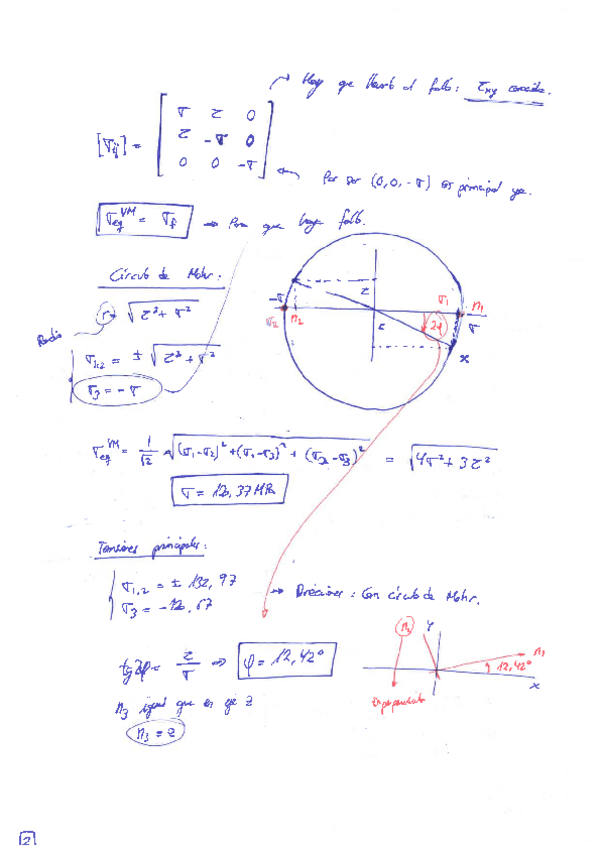 Hay que llevarlo al fallo: τxy conocida.
[σij] = [ σ τ 0
τ -σ 0
0 0 -σ ]
Por ser (0,0,-σ) es principal ya.
σeq^VM = σf → Para que haya fallo.
Círculo de Mohr:
Radio
r = √(τ²+σ²)
σ1,2 = ± √(τ²+σ²)
σ3 = -σ
-σ τ σ1 n1
σ2 n2 2φ σ
x
σeq^VM = 1/√2 √((σ1-σ2)²+(σ1-σ3)²+(σ2-σ3)²) = √(4σ²+3τ²)
σ = 120,37 MPa
Tensiones principales:
σ1,2 = ± 132,97
→ Direcciones: Con círculo de Mohr.
tg2φ = τ/σ ⇒ φ = 12,42°
n2 y n1
12,42°
x
n3 igual que en eje z
n3 = z
2